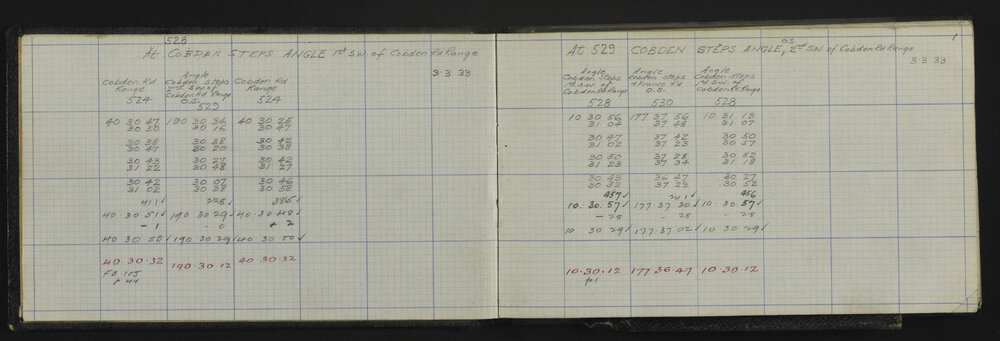 528
At COBDEN STEPS ANGLE 1st S.W. of Cobden Rd Range
3·3·33
Cobden Rd Range 524
Angle Cobden Steps 2nd S.W of Cobden Rd Range O.S. 529
Cobden Rd Range 524
40 30 47 190 30 34 40 30 25
30 50 30 16 30 47
30 38 30 38 30 42
30 47 30 20 30 38
30 43 30 27 30 42
31 22 30 48 31 27
30 42 30 07 30 46
31 02 30 38 30 58
411√ 228√ 385√
40·30·51√ 190 30 29√ 40·30·48√
- 1 - 0 + 2
40 30 50√ 190 30 29√ 40 30 50√
40·30·32 190·30·12 40·30·32
FB 105
p 44
1
O.S.
At 529 COBDEN STEPS ANGLE, 2nd S.W. of Cobden Rd Range
3·3·33
Angle Cobden Steps 1st S.W. of Cobden Rd Range 528
Angle Cobden Steps France Rd O.S. 530
Angle Cobden Steps 1st S.W. of Cobden Rd Range 528
10 30 56 177 37 56 10 31 13
31 04 37 48 31 07
30 47 37 42 30 50
31 02 37 23 30 57
30 50 37 28 30 52
31 23 37 34 31 18
30 43 36 47 30 27
30 52 37 23 30 52
457√ 241√ 456
10·30·57√ 177·37·30√ 10·30·57√
- 28 - 28 - 28
10 30 29√ 177·37·02√ 10·30·29√
10·30·12 177 36 47 10·30·12
p1